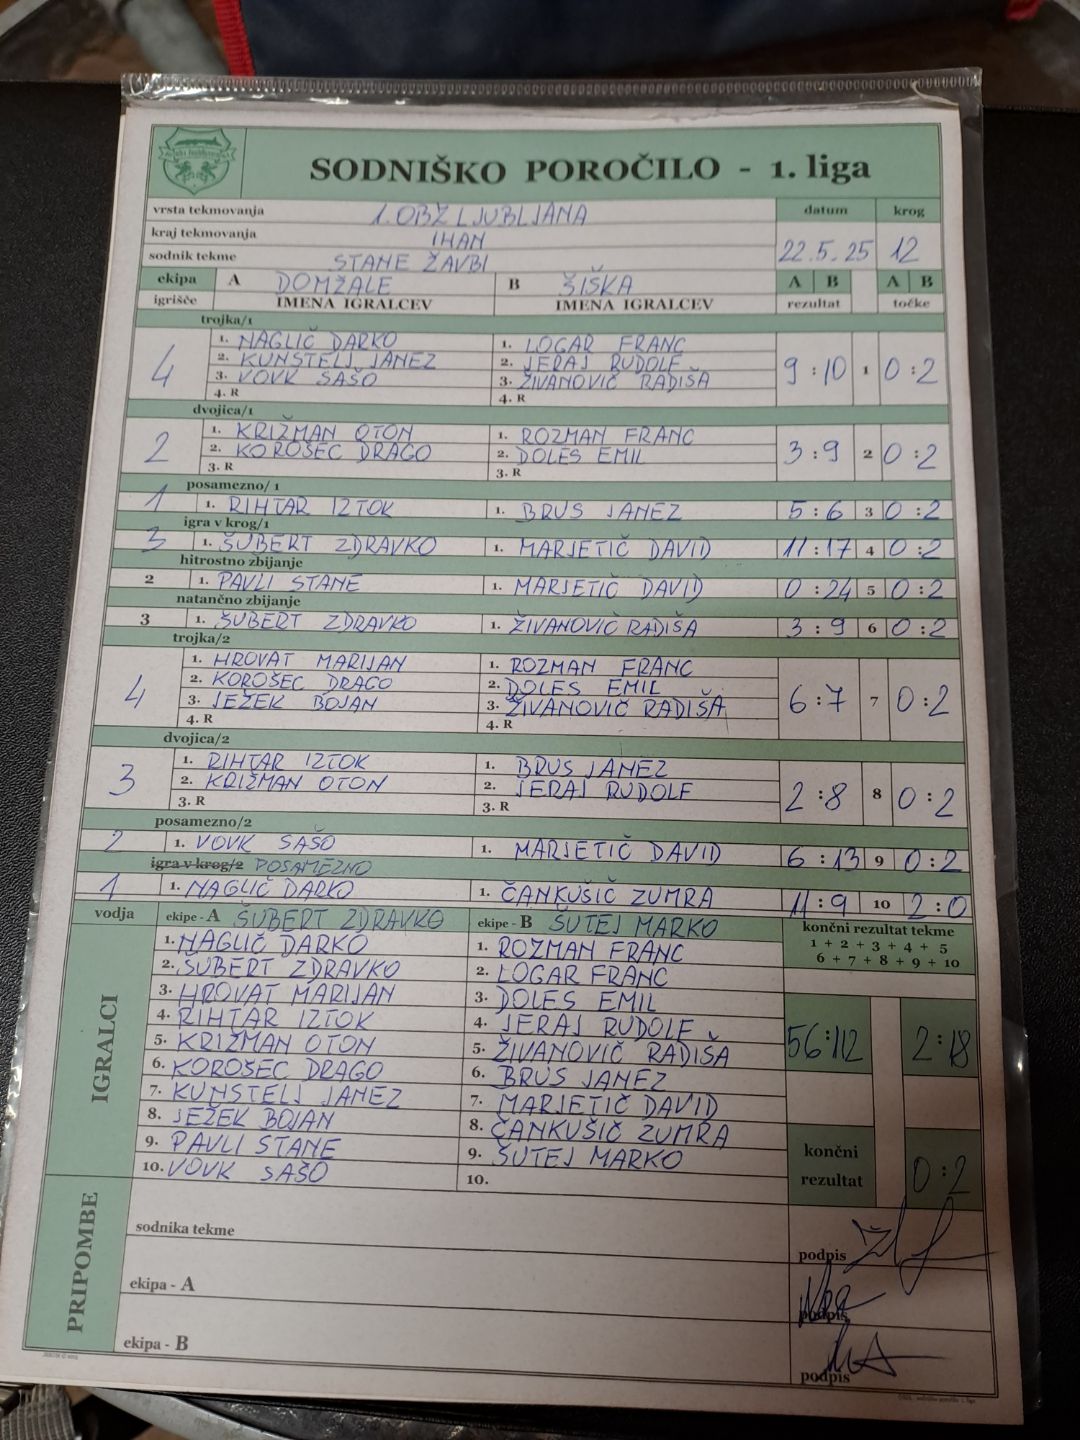 SODNIŠKO POROČILO - 1. liga
vrsta tekmovanja 1. OBZ LJUBLJANA datum krog
kraj tekmovanja IHAN 22.5.25 12
sodnik tekme STANE ŽAVBI
ekipa A DOMŽALE B ŠIŠKA A B A B
igrišče IMENA IGRALCEV IMENA IGRALCEV rezultat točke
trojka/1
4 1. NAGLIČ DARKO 1. LOGAR FRANC 9:10 1 0:2
2. KUNSTELJ JANEZ 2. JERAJ RUDOLF
3. VOVK SAŠO 3. ŽIVANOVIČ RADIŠA
4. R 4. R
dvojica/1
2 1. KRIŽMAN OTON 1. ROZMAN FRANC 3:9 2 0:2
2. KOROŠEC DRAGO 2. DOLES EMIL
3. R 3. R
posamezno/1
1 1. RIHTAR IZTOK 1. BRUS JANEZ 5:6 3 0:2
igra v krog/1
3 1. ŠUBERT ZDRAVKO 1. MARJETIČ DAVID 11:17 4 0:2
hitrostno zbijanje
2 1. PAVLI STANE 1. MARJETIČ DAVID 0:24 5 0:2
natančno zbijanje
3 1. ŠUBERT ZDRAVKO 1. ŽIVANOVIČ RADIŠA 3:9 6 0:2
trojka/2
4 1. HROVAT MARIJAN 1. ROZMAN FRANC 6:7 7 0:2
2. KOROŠEC DRAGO 2. DOLES EMIL
3. JEŽEK BOJAN 3. ŽIVANOVIČ RADIŠA
4. R 4. R
dvojica/2
3 1. RIHTAR IZTOK 1. BRUS JANEZ 2:8 8 0:2
2. KRIŽMAN OTON 2. JERAJ RUDOLF
3. R 3. R
posamezno/2
2 1. VOVK SAŠO 1. MARJETIČ DAVID 6:13 9 0:2
igra v krog/2 POSAMEZNO
1 1. NAGLIČ DARKO 1. ČANKUŠIČ ZUMRA 11:9 10 2:0
vodja ekipe - A ŠUBERT ZDRAVKO ekipe - B ŠUTEJ MARKO končni rezultat tekme
1 + 2 + 3 + 4 + 5
6 + 7 + 8 + 9 + 10
IGRALCI
1. NAGLIČ DARKO 1. ROZMAN FRANC
2. ŠUBERT ZDRAVKO 2. LOGAR FRANC
3. HROVAT MARIJAN 3. DOLES EMIL
4. RIHTAR IZTOK 4. JERAJ RUDOLF 56:112 2:18
5. KRIŽMAN OTON 5. ŽIVANOVIČ RADIŠA
6. KOROŠEC DRAGO 6. BRUS JANEZ
7. KUNSTELJ JANEZ 7. MARJETIČ DAVID
8. JEŽEK BOJAN 8. ČANKUŠIČ ZUMRA
9. PAVLI STANE 9. ŠUTEJ MARKO končni
10. VOVK SAŠO 10. rezultat 0:2
PRIPOMBE
sodnika tekme podpis
ekipa - A podpis
ekipa - B podpis